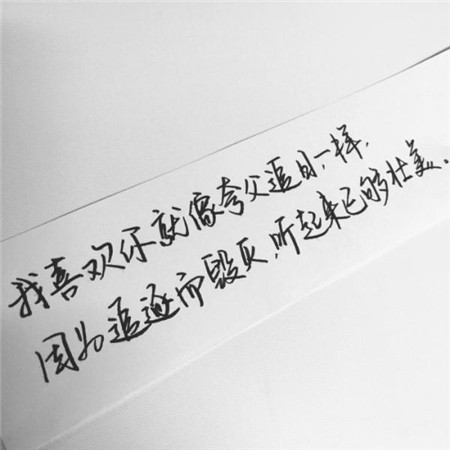 我喜欢你就像夸父追日一样，
因为追逐而毁灭，听起来已够壮美。